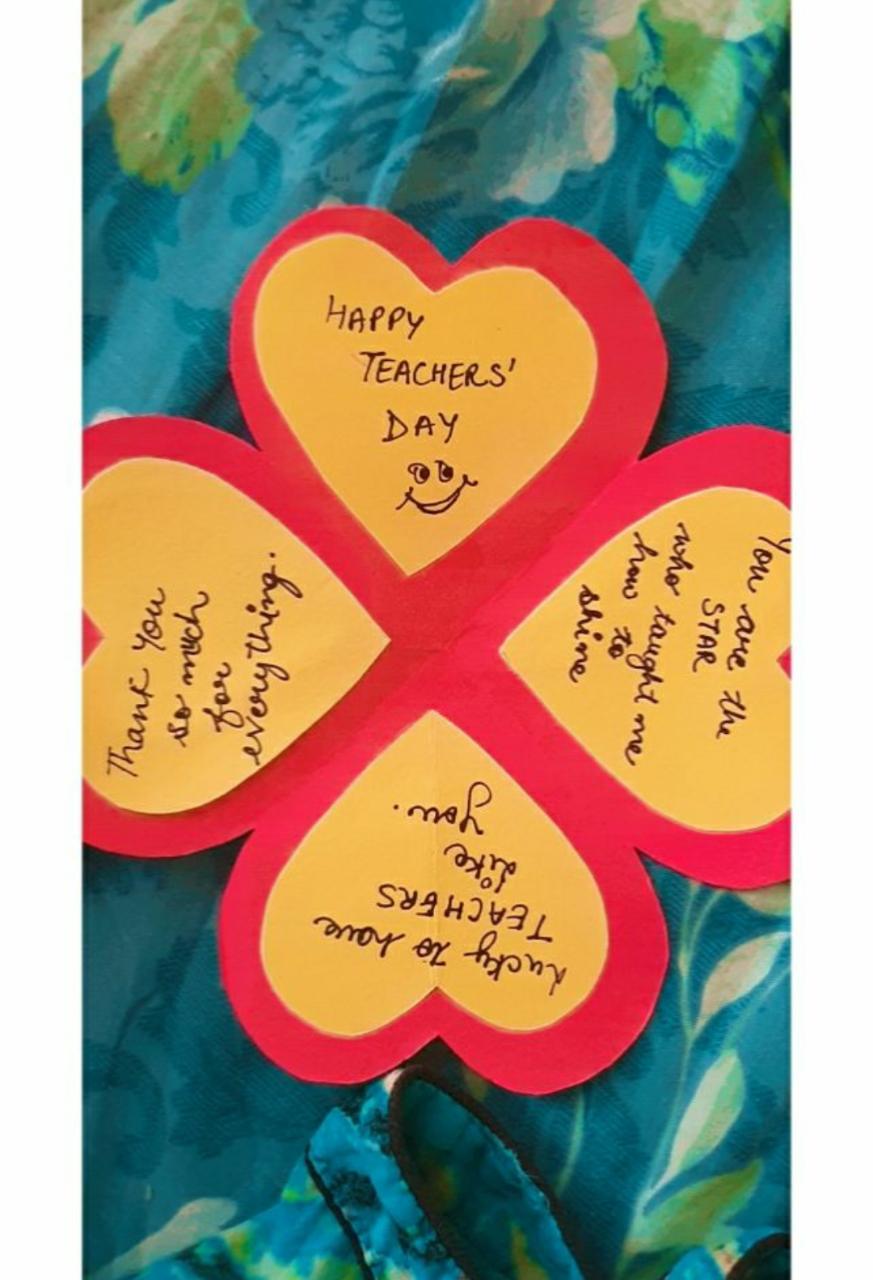 HAPPY
TEACHERS'
DAY
You are the
STAR
who taught me
how to
shine
Lucky to have
TEACHERS
like
you.
Thank You
so much
for
everything.